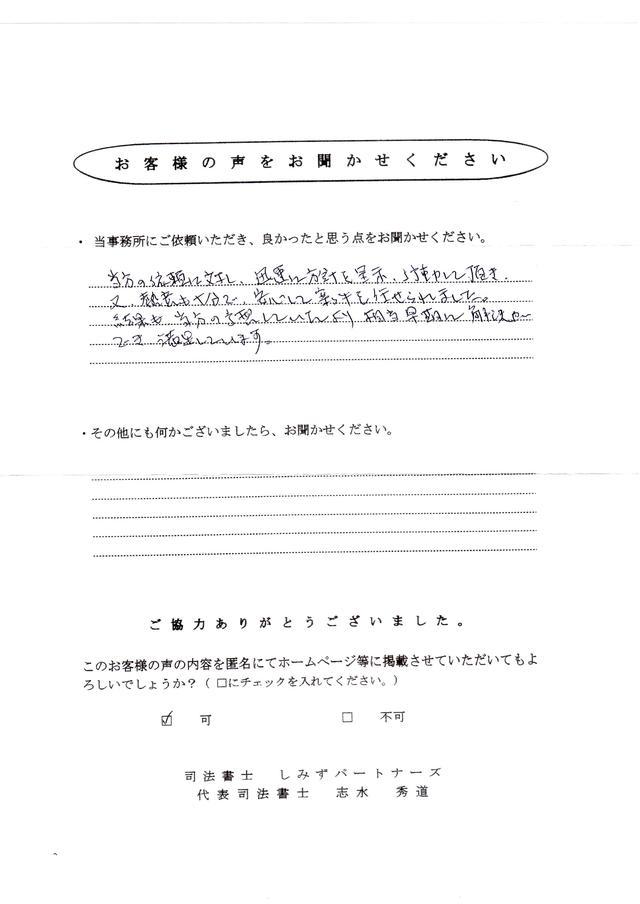 お客様の声をお聞かせください
・当事務所にご依頼いただき、良かったと思う点をお聞かせください。
当方の依頼に対し、迅速に方針を呈示、行動して頂き、
又、熱意も十分で、安心して案件を任せられました。
結果も当方の予想していたより相当早期に解決
でき満足しています。
・その他にも何かございましたら、お聞かせください。
ご協力ありがとうございました。
このお客様の声の内容を匿名にてホームページ等に掲載させていただいてもよ
ろしいでしょうか?(□にチェックを入れてください。)
☑ 可 □ 不可
司法書士 しみずパートナーズ
代表司法書士 志水 秀道